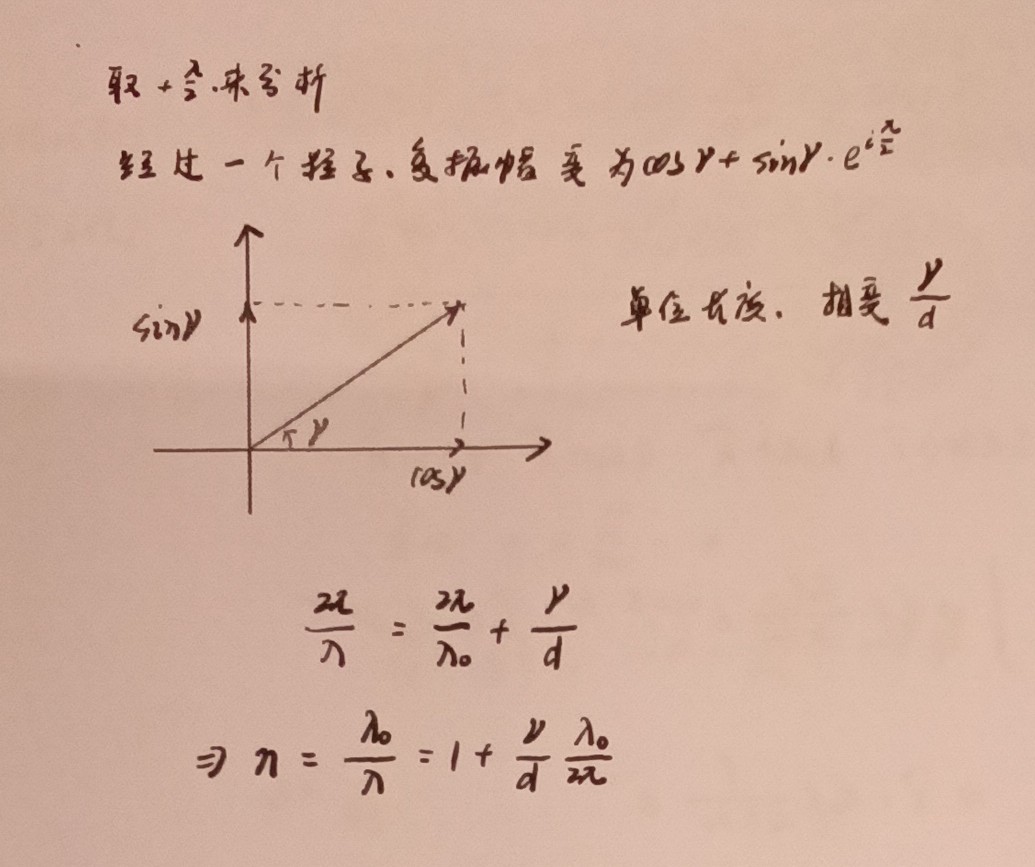 取 + π/2 来分析
经过一个粒子、复振幅变为 cosγ + sinγ · e^{iπ/2}
sinγ
单位长度, 相变 γ/d
γ
cosγ
2π/λ = 2π/λ₀ + γ/d
⇒ n = λ₀/λ = 1 + γ/d λ₀/2π